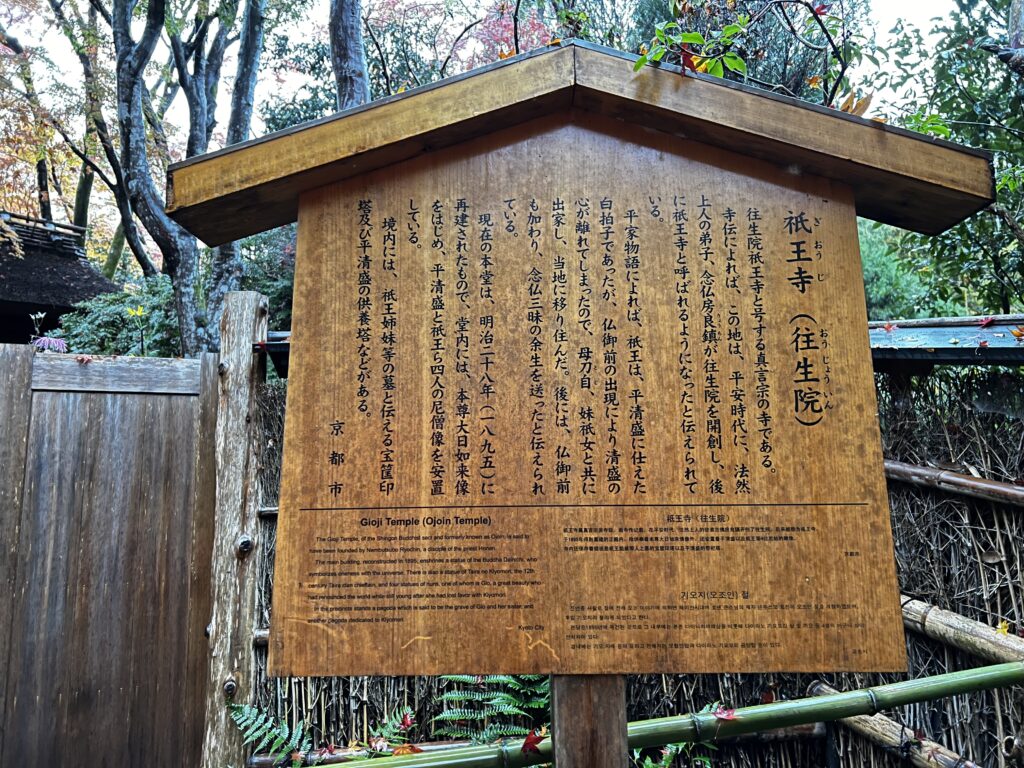 祇王寺（往生院）
ぎおうじ
おうじょういん
往生院祇王寺と号する真言宗の寺である。
寺伝によれば、この地は、平安時代に、法然
上人の弟子、念仏房良鎮が往生院を開創し、後
に祇王寺と呼ばれるようになったと伝えられて
いる。
平家物語によれば、祇王は、平清盛に仕えた
白拍子であったが、仏御前の出現により清盛の
心が離れてしまったので、母刀自、妹祇女と共に
出家し、当地に移り住んだ。後には、仏御前
も加わり、念仏三昧の余生を送ったと伝えられ
ている。
現在の本堂は、明治二十八年（一八九五）に
再建されたもので、堂内には、本尊大日如来像
をはじめ、平清盛と祇王ら四人の尼僧像を安置
している。
境内には、祇王姉妹等の墓と伝える宝筐印
塔及び平清盛の供養塔などがある。
京都市
Gioji Temple (Ojoin Temple)
The Gioji Temple, of the Shingon Buddhist sect and formerly known as Ojoin, is said to
have been founded by Nembutubo Ryochin, a disciple of the priest Honen.
The main building, reconstructed in 1895, enshrines a statue of the Buddha Dainichi, who
symbolizes oneness with the universe. There is also a statue of Taira no Kiyomori, the 12th
century Taira clan chieftain, and four statues of nuns, one of whom is Gio, a great beauty who
had renounced the world while still young after she had lost favor with Kiyomori.
In the precincts stands a pagoda which is said to be the grave of Gio and her sister, and
another pagoda dedicated to Kiyomori.
Kyoto City
祇王寺（往生院）
京都市
기오지(오조인) 절